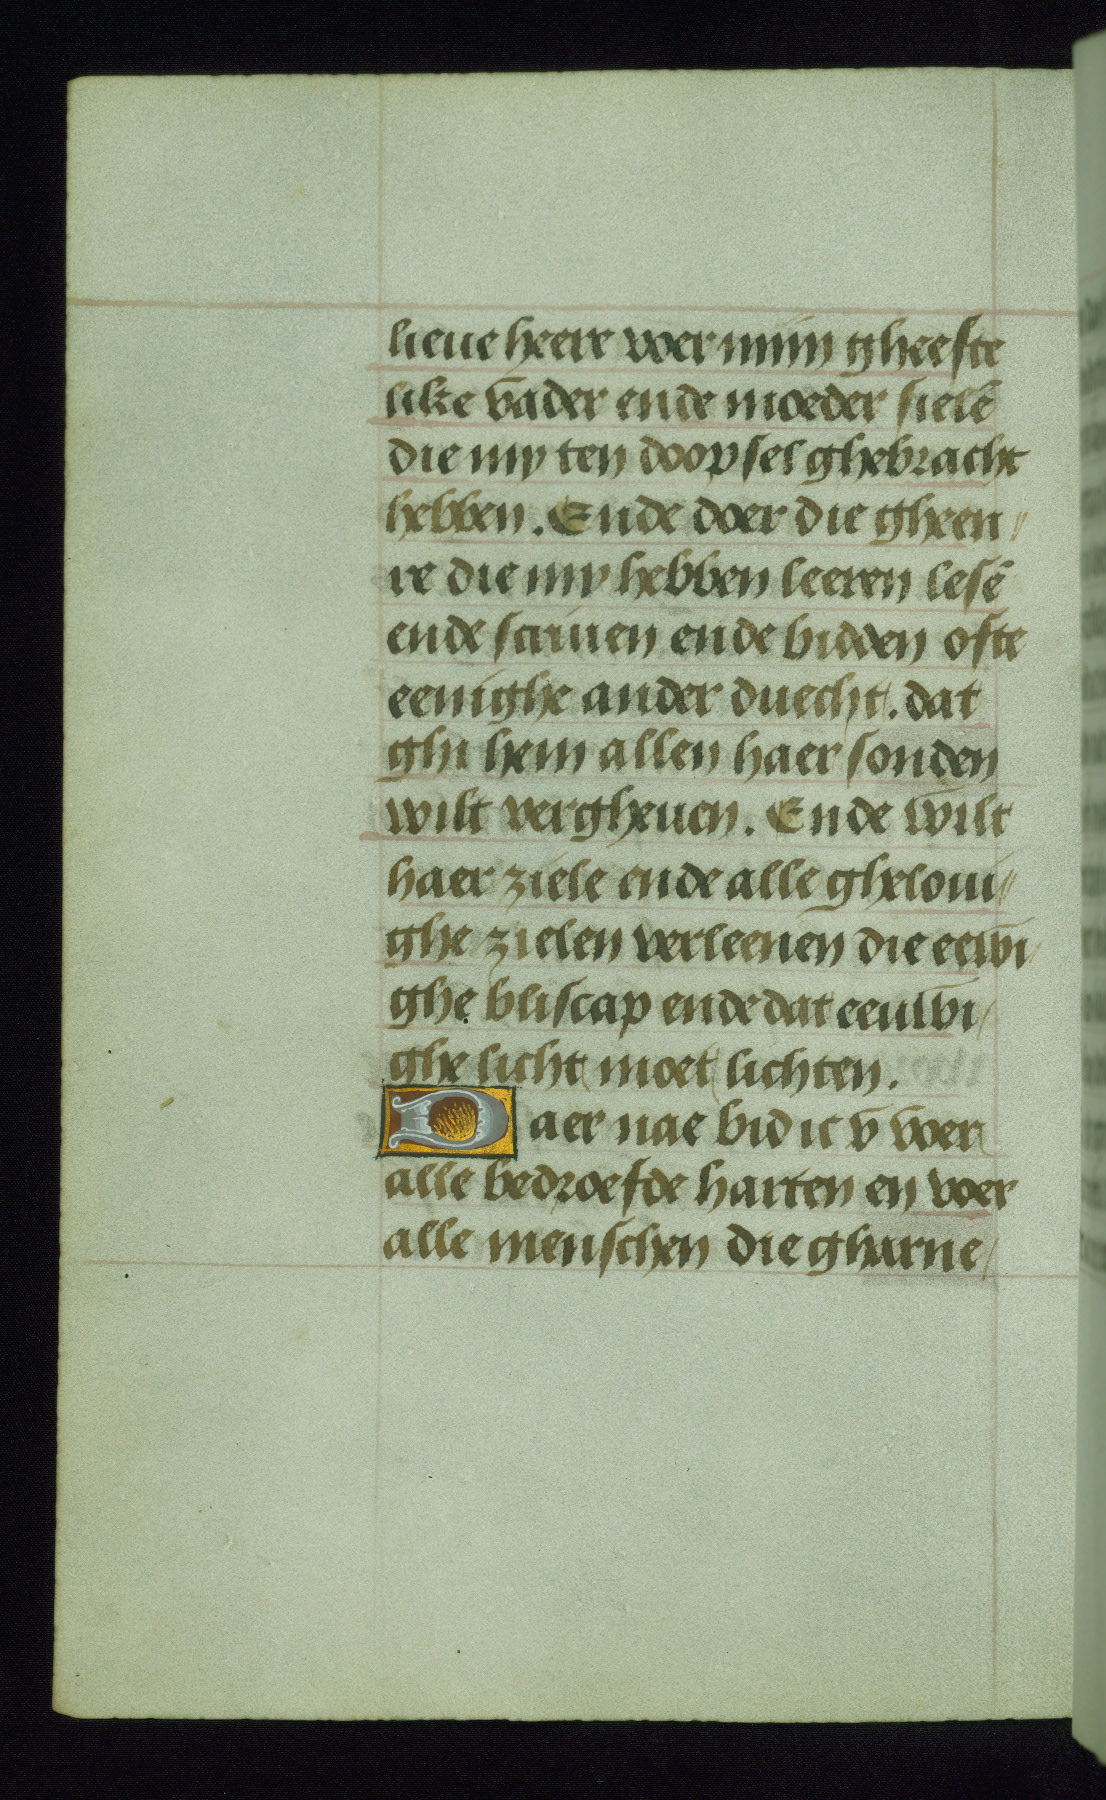 lieue heere voer miin gheeste
like vader ende moeder sielē
die my ten doopsel ghebracht
hebben. Ende doer die gheen〃
re die my hebben leeren lesē
ende scriuen ende bidden ofte
eenighe ander duecht. dat
ghi hem allen haer sonden
wilt vergheuen. Ende wilt
haer ziele ende alle gheloui〃
ghe zielen verleenen die eewi/
ghe bliscap ende dat eeuwi/
ghe licht moet lichten.
Daer nae bid ic v voer
alle bedroefde harten en voer
alle menschen die gharne/